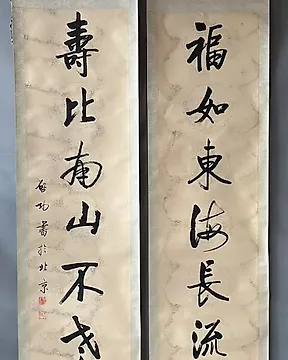 福如東海長流
壽比南山不老
啟功書於北京